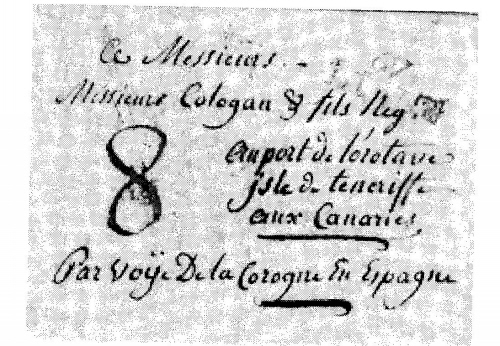 A Messieurs
Messieurs Cologan & fils Neg.ts
8
au port de l'orotava
jsle de teneriffe
aux Canaries
Par Voÿe De la Corogne En Espagne